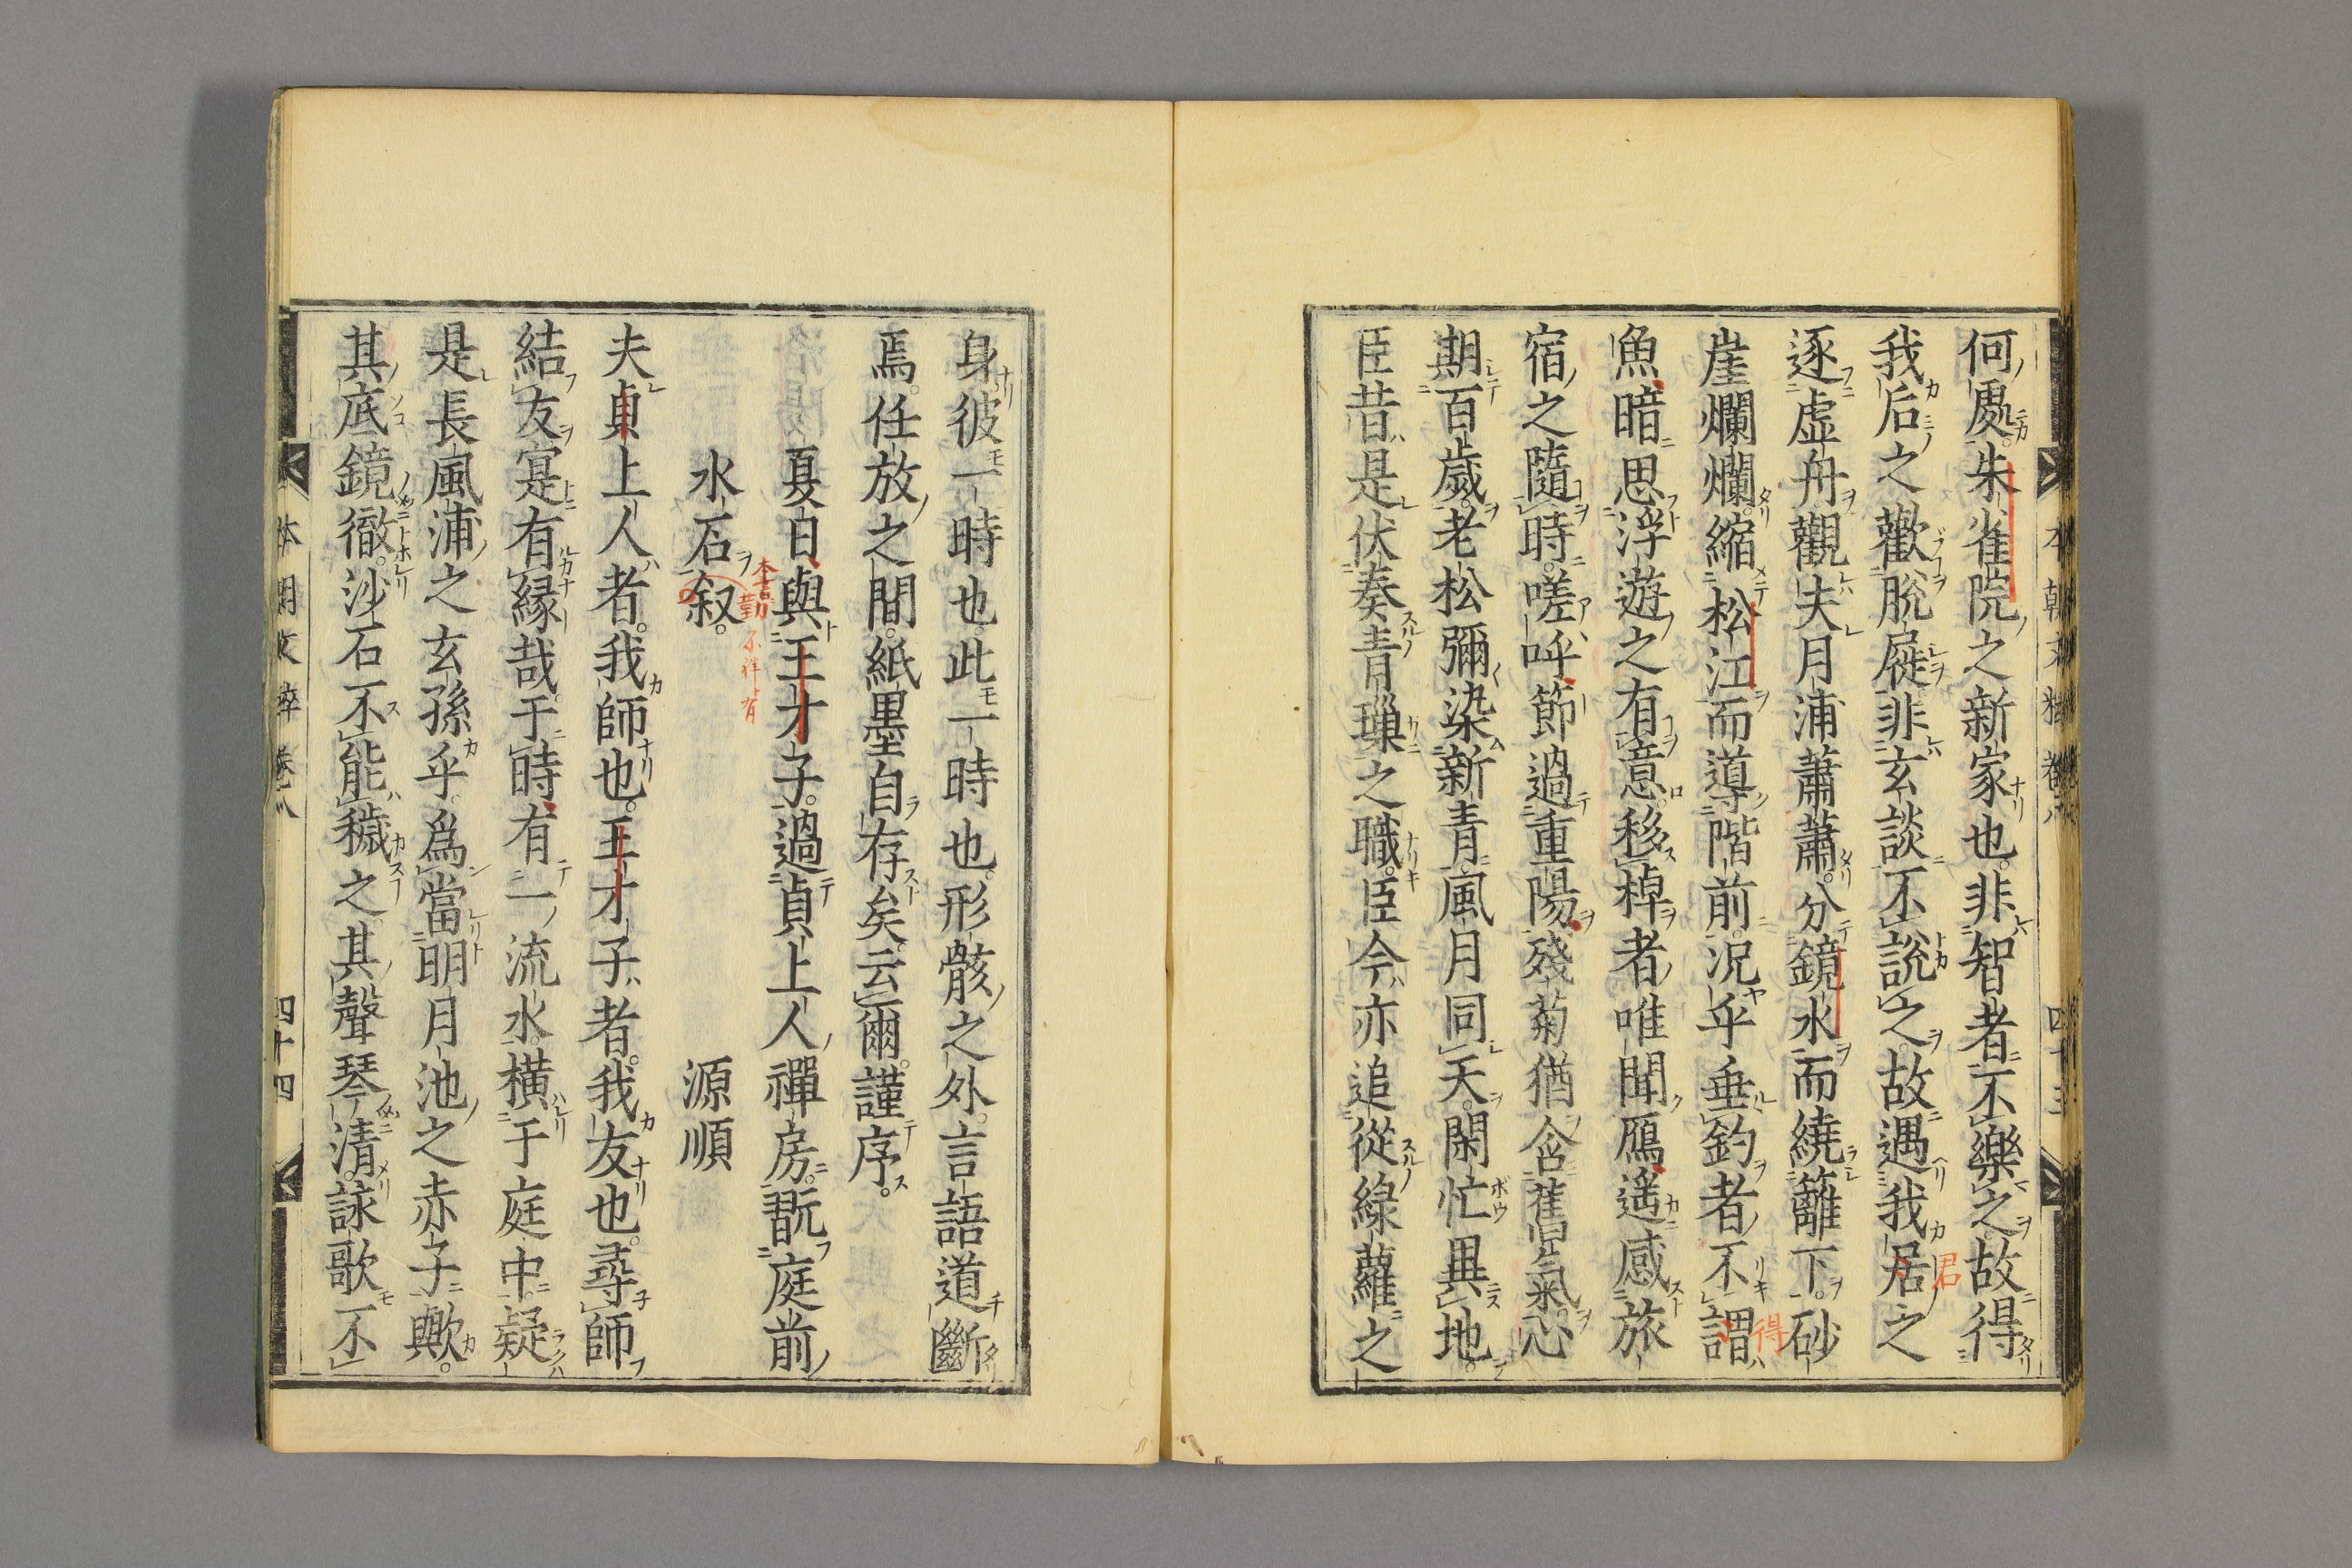 何處朱雀院之新家也。非智者不樂之。故得
我后之歡脫屣。非玄談不說之。故遇我居之
逐虛舟觀夫月浦蕭蕭。分鏡水而繞籬下。砂
崖爛爛。縮松江而導階前。況乎垂釣者不謂
魚暗思浮遊之有意。移棹者唯聞鴈遥感旅
宿之隨時。嗟呼節過重陽。殘菊猶含舊氣。心
期百歲。老松彌染新青。風月同天。閑忙異地。
臣昔是伏奏青瑣之職。臣今亦追從綠蘿之
身彼一時也此一時也。形骸之外。言語道斷
焉。任放之間。紙墨自存矣。云爾。謹序。
夏日與王才子。過貞上人禪房。翫庭前
水石叙。
源順
夫貞上人者。我師也。王才子者。我友也。尋師
結友寔有縁哉。于時有一流水。橫于庭中。疑
是長風浦之玄孫乎。爲當明月池之赤子歟。
其底鏡徹。沙石不能穢之。其聲琴清。詠歌不
君
得
本書
勘
本朝文粹 卷八
四十三
四十四